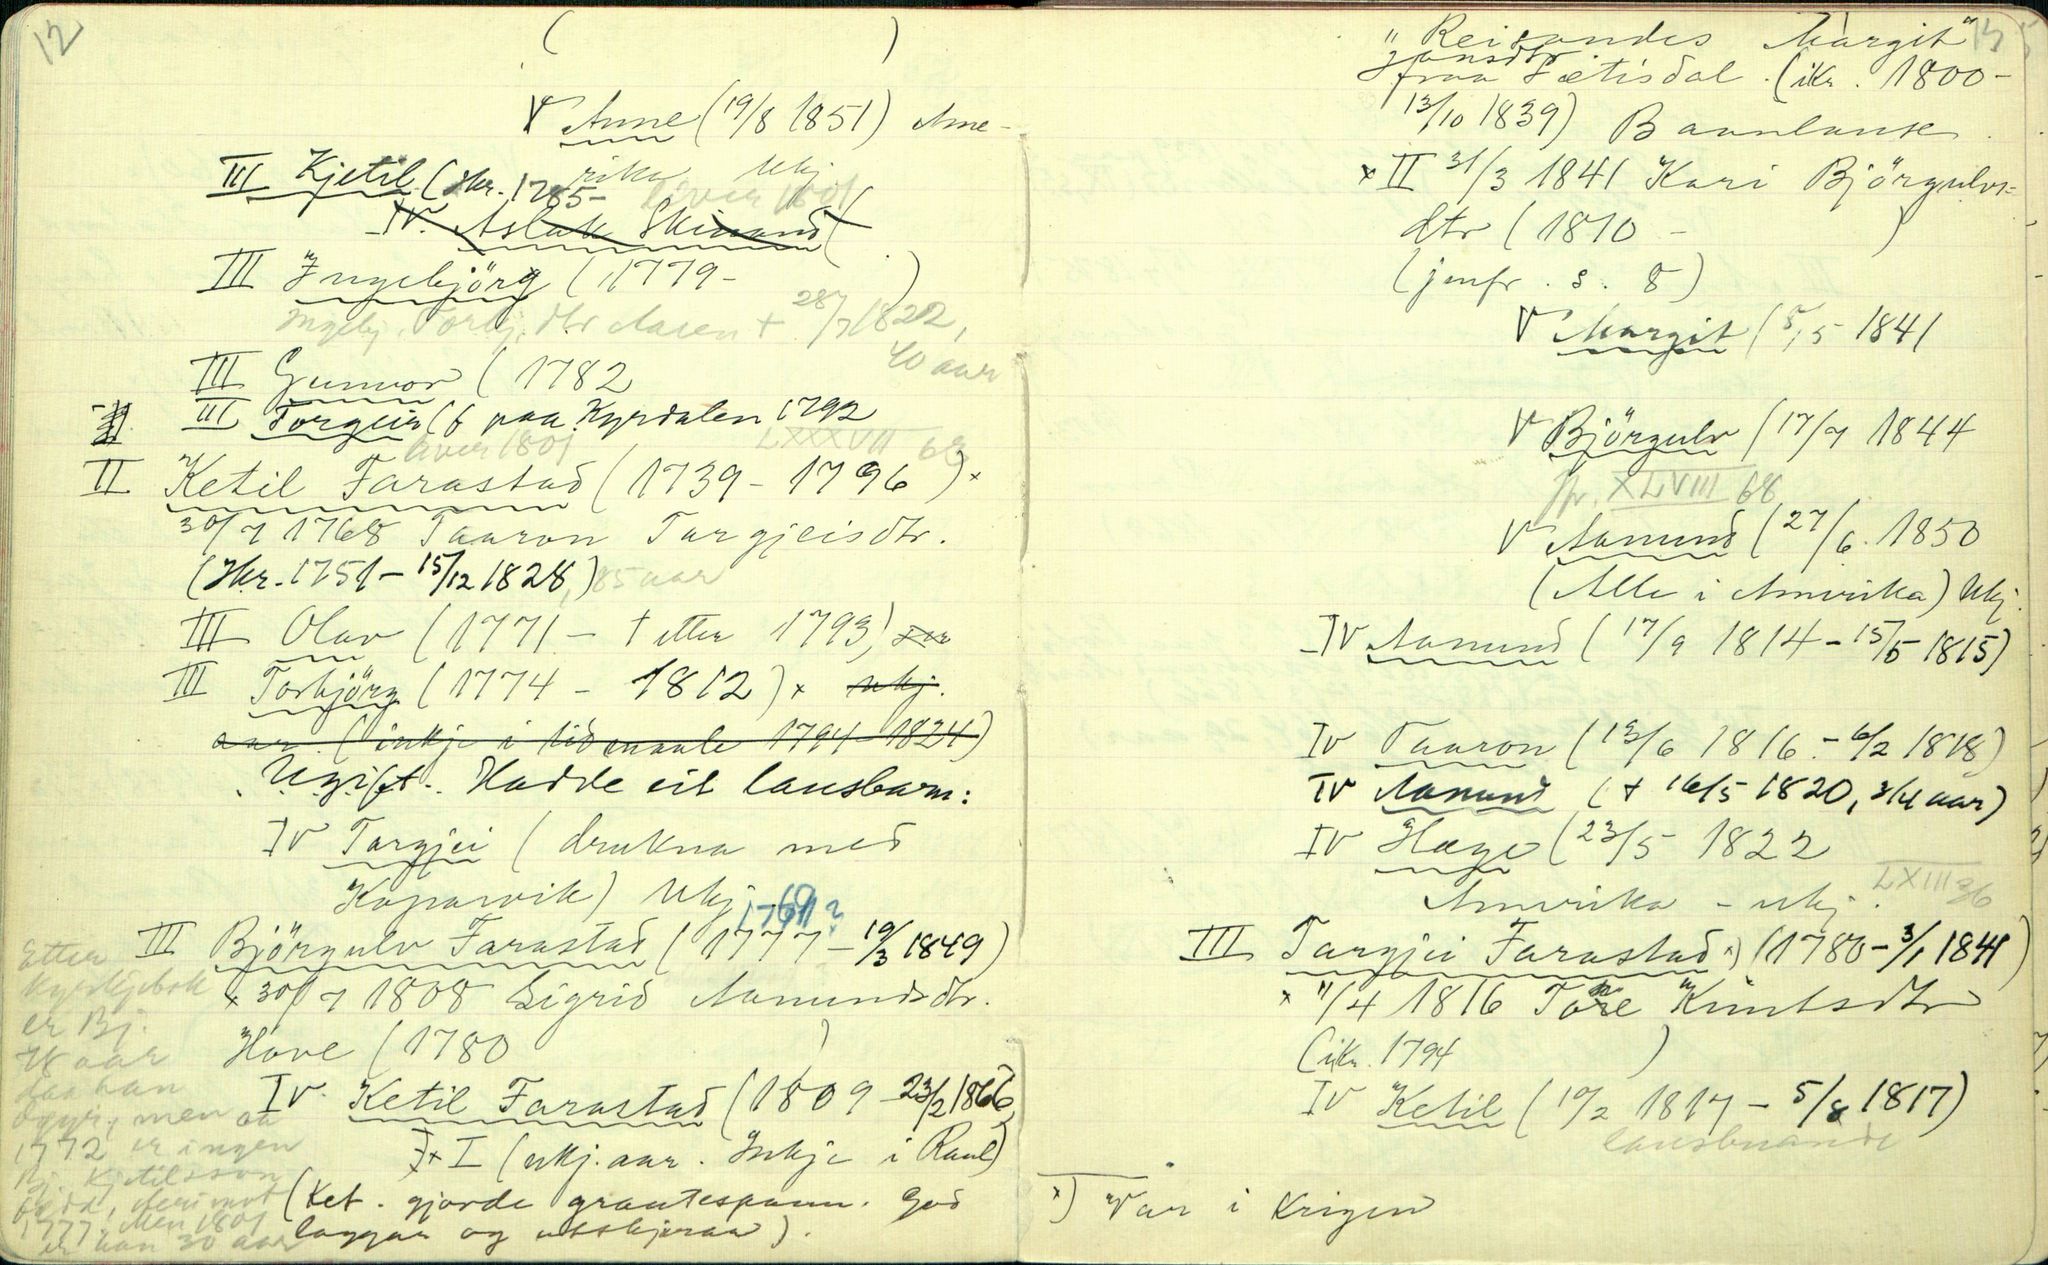 12
( )
V Anne (19/8 1851) Ame-
rika ukj
III Kjetil (ikr. 1785-
liver 1801
IV. Aslak Skinand (
III Ingebjörg (1779- )
Ingebj. Torbj.dtr Aasen + 28/7 1822,
40 aar
III Gunvor (1782
III Torgeir (f paa Kyrdalen 1792
liver 1801 LXXXVII 68
II Ketil Farastad (1739-1796) x
30/7 1768 Taaron Targjeisdtr.
(ikr. 1751 - 15/12 1828,) 85 aar
III Olav (1771 - † etter 1793)
III Torbjörg (1774 - 1812) x ukj.
aar. (inkje i lidmaale 1794-1824)
Ugift. Hadde eit lausbarn:
IV Targjei (drukna med
Koparvik) Ukj
1761?
III Björgulv Farastad (1777 - 19/3 1849)
x 30/7 1808 Sigrid Aamundsdtr.
Hove (1780 )
IV. Ketil Farastad (1809 - 23/2 1866,
x I (ukj. aar. Inkje i Raul)
(Ket. gjorde grautespann. God
laggar og utskjerar).
Etter
kyrkjebok
er Bj.
78 aar
daa han
döyr, men
1772 er ingen
Bj. Kjetilsson
född, derimot
1777. Men 1801
er han 30 aar
13
"Reisandes Margit"
Jonsdtr
fraa Sætisdal. (ikr. 1800-
13/10 1839) Baanlaus
x II 31/3 1841 Kari Björgulvs=
dtr (1810 - )
(jmfr. s. 8)
V Margit (5/5 1841
V Björgulv (17/7 1844
Jfr. XLVIII 68
V Aamund (27/6. 1850
(Alle i Amerika) Ukj.
IV Aamund (17/9 1814 - 15/5 1815)
IV Taaron (13/6 1816 - 6/2 1818)
IV Aamund († 16/5 1820, 3/4 aar)
IV Hæge (23/5 1822
Amerika - ukj. LXIII 36
III Targjei Farastad x) (1780 - 3/1 1841)
x 11/4 1816 Tore Knutsdtr
(ikr. 1794 )
IV Ketil (10/2 1817 - 5/8 1817)
lausbuande
x) Var i Krigen